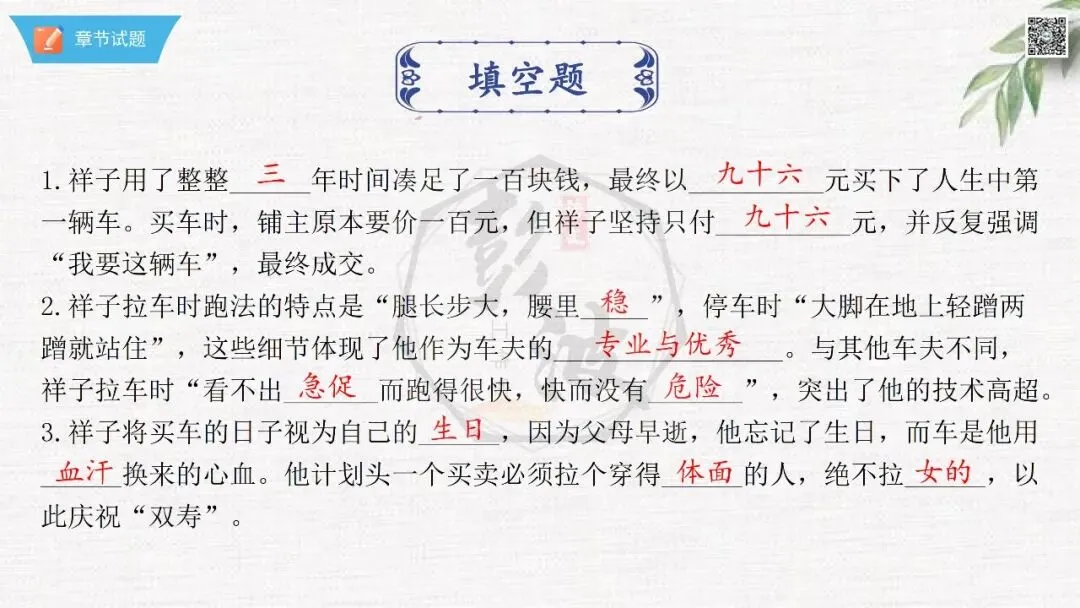 章节试题
填空题
1. 祥子用了整整三年时间凑足了一百块钱，最终以九十六元买下了人生中第
一辆车。买车时，铺主原本要价一百元，但祥子坚持只付九十六元，并反复强调
“我要这辆车”，最终成交。
2. 祥子拉车时跑法的特点是“腿长步大，腰里稳”，停车时“大脚在地上轻蹭两
蹭就站住”，这些细节体现了他作为车夫的专业与优秀。与其他车夫不同，
祥子拉车时“看不出急促而跑得很快，快而没有危险”，突出了他的技术高超。
3. 祥子将买车的日子视为自己的生日，因为父母早逝，他忘记了生日，而车是他用
血汗换来的心血。他计划头一个买卖必须拉个穿得体面的人，绝不拉女的，以
此庆祝“双寿”。